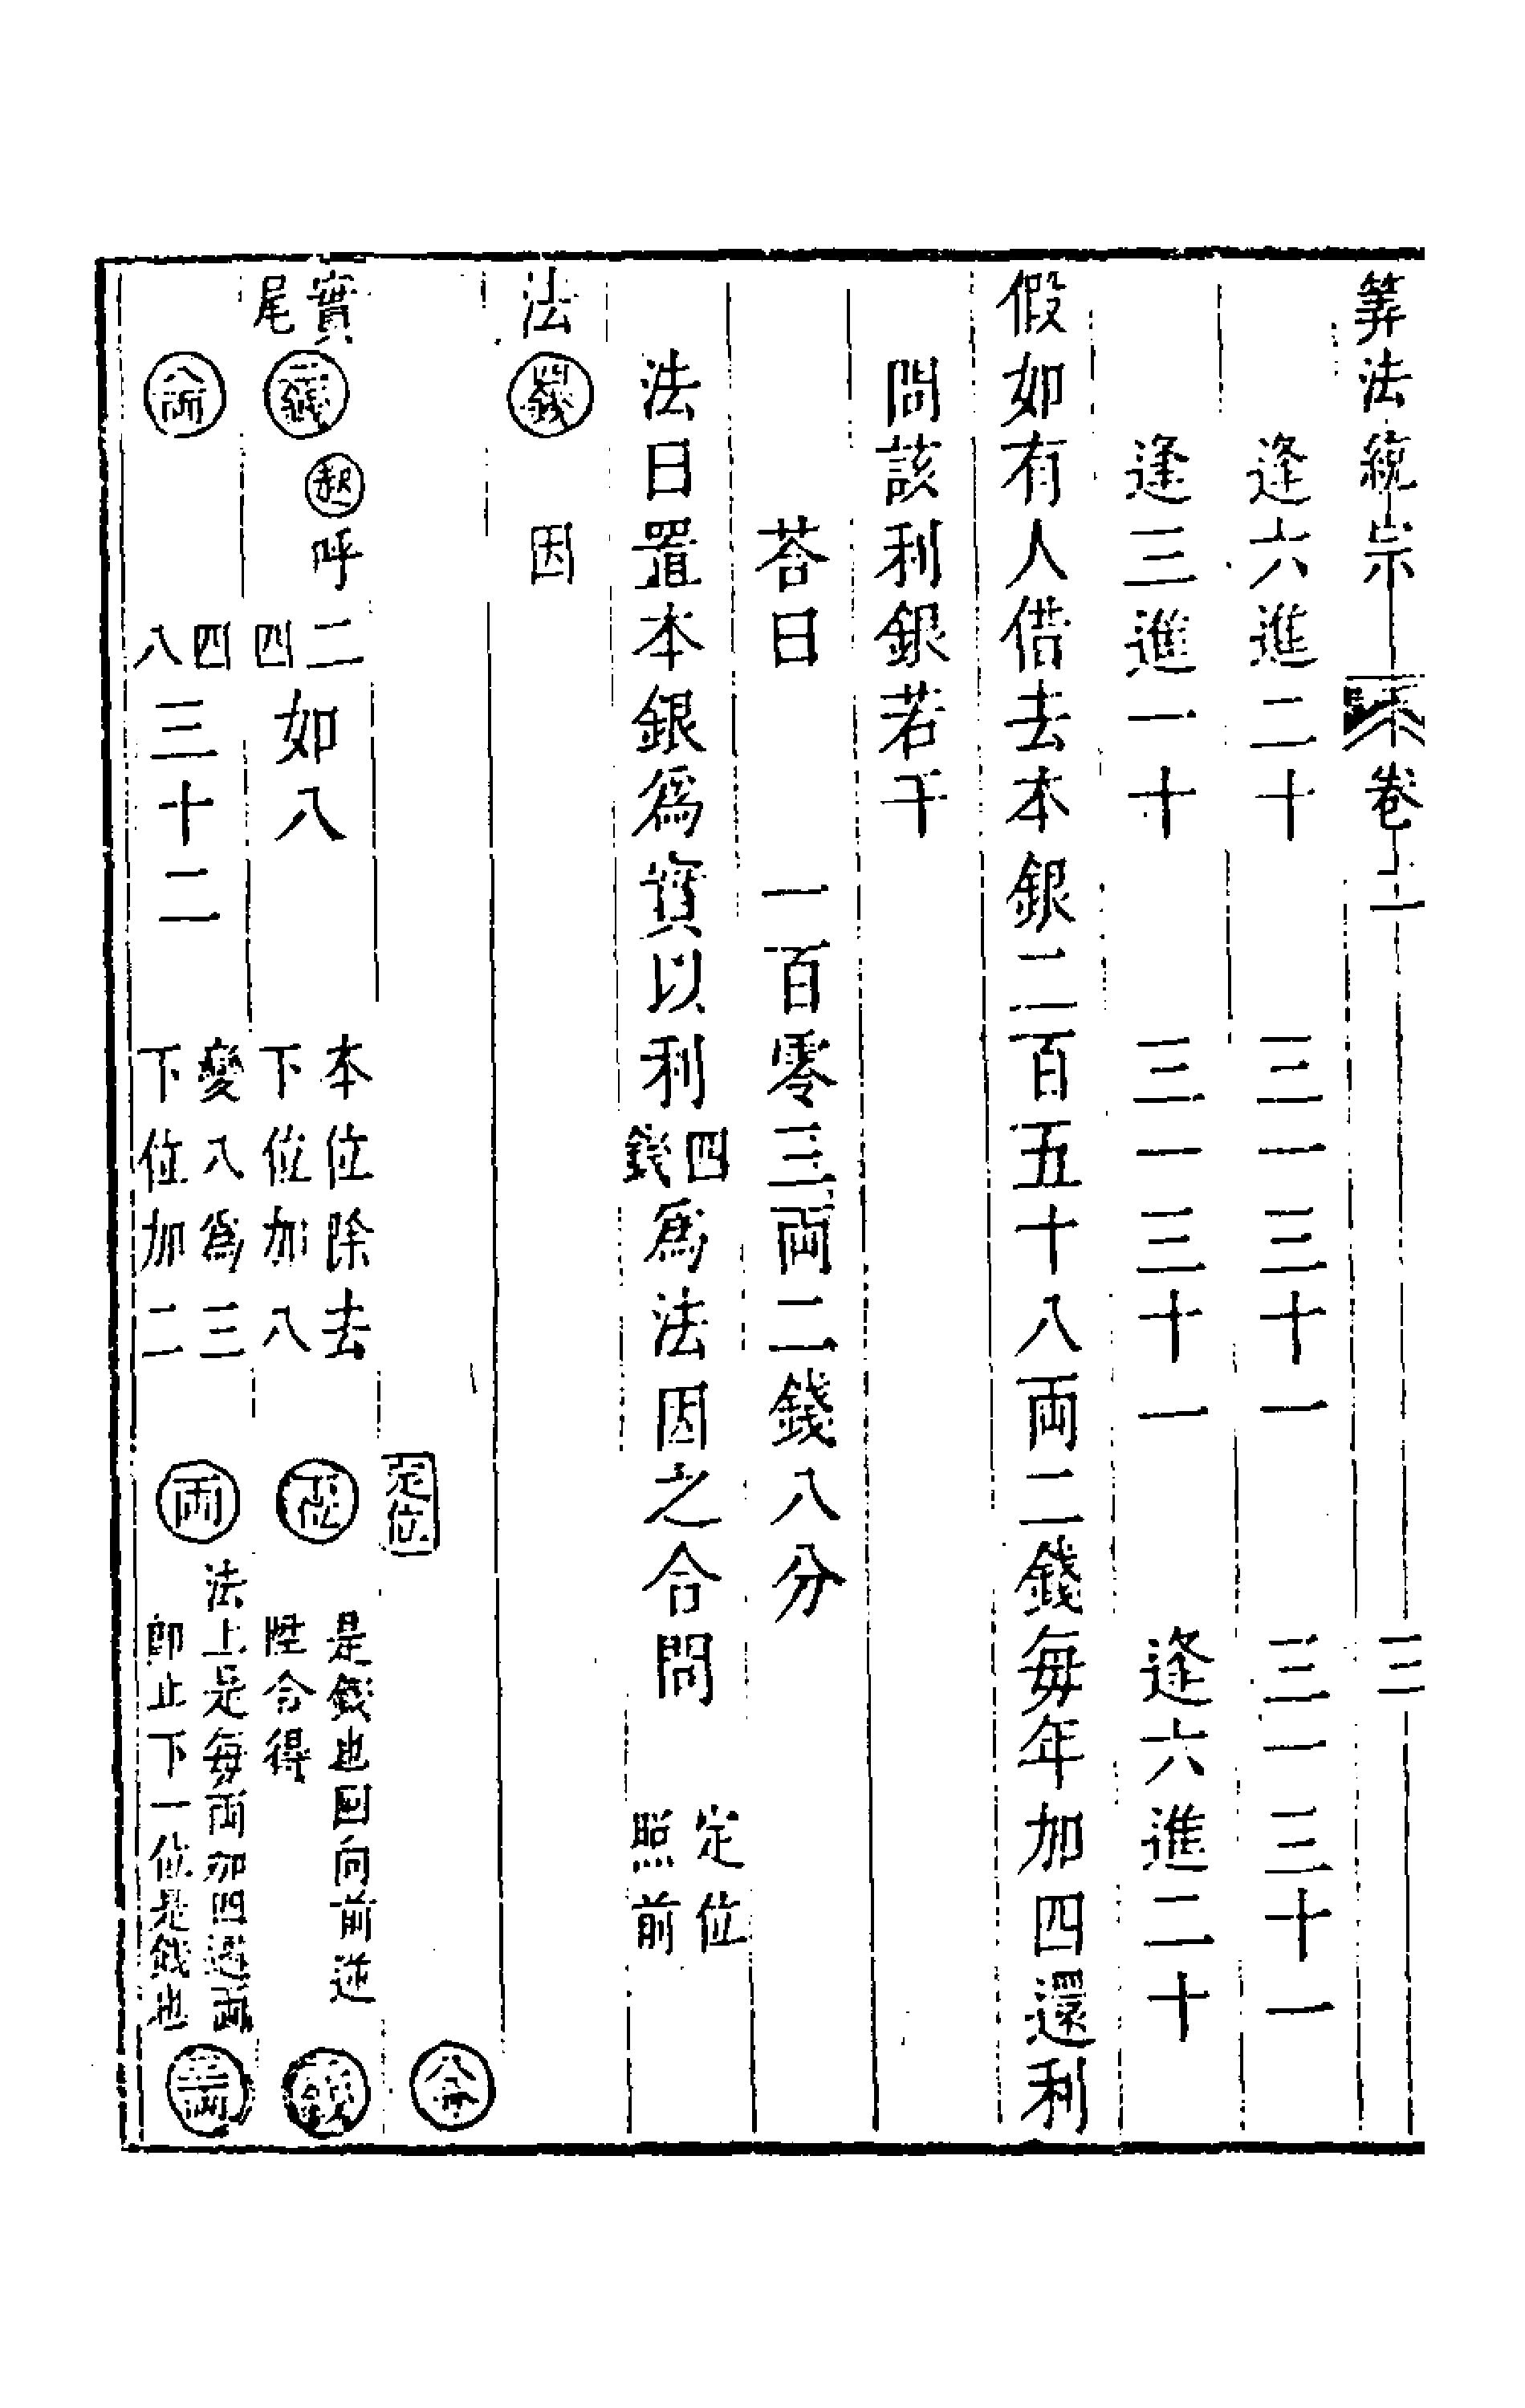 筭法統宗 卷二 三
逢六進二十 三一三十一 三一三十一
逢三進一十 三一三十一 逢六進二十
假如有人借去本銀二百五十八両二錢每年加四還利
問該利銀若干
荅曰 一百零三両二錢八分
法曰置本銀爲實以利四錢爲法因之合問 定位照前
法 四錢 因
定位 八分
實尾 二錢 起呼二四如八 本位除去下位加八 下位 是錢也回向前逆陞合得 二錢
八両 四八三十二 變八爲三下位加二 両 法上是每両加四還両即止下一位是錢也 三両